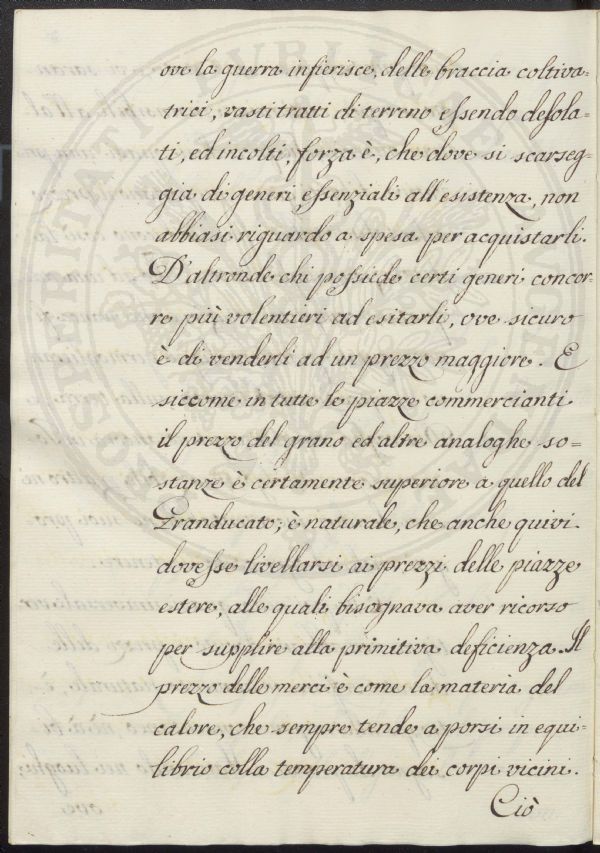 ove la guerra infierisce, delle braccia coltiva-
trici, vasti tratti di terreno essendo desola-
ti, ed incolti, forza è, che dove si scarseg-
gia di generi essenziali all'esistenza, non
abbiasi riguardo a spesa per acquistarli.
D'altronde chi possiede certi generi concor-
re più volentieri ad esitarli, ove sicuro
è di venderli ad un prezzo maggiore. E
siccome in tutte le piazze commercianti
il prezzo del grano ed altre analoghe so-
stanze è certamente superiore a quello del
Granducato; è naturale, che anche quivi
dovesse livellarsi ai prezzi delle piazze
estere, alle quali bisognava aver ricorso
per supplire alla primitiva deficienza. Il
prezzo delle merci è come la materia del
calore, che sempre tende a porsi in equi-
librio colla temperatura dei corpi vicini.
Ciò